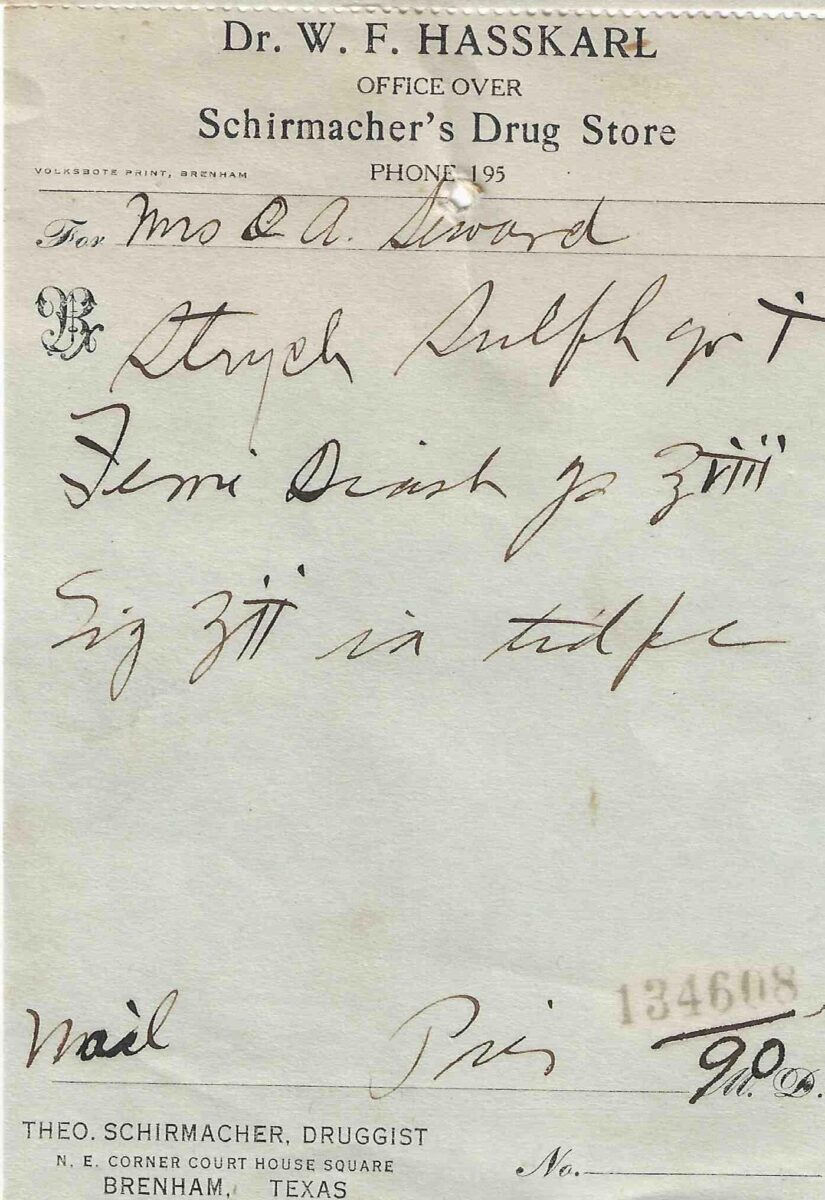 Dr. W. F. HASSKARL
OFFICE OVER
Schirmacher's Drug Store
VOLKSBOTE PRINT, BRENHAM PHONE 195
For Mrs O A. Seward
Rx
Strych Sulph gr i
Ferri Diast qs ʒviii
Sig ʒii in tid pc
134608
Mail 90
M. D.
THEO. SCHIRMACHER, DRUGGIST
N. E. CORNER COURT HOUSE SQUARE No.
BRENHAM, TEXAS